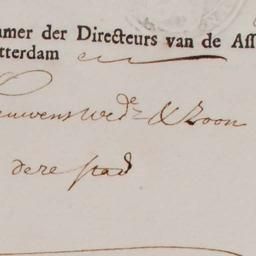 amer der Directeurs van de Ass
tterdam en
euwens Wed.e & Zoon
dese stad